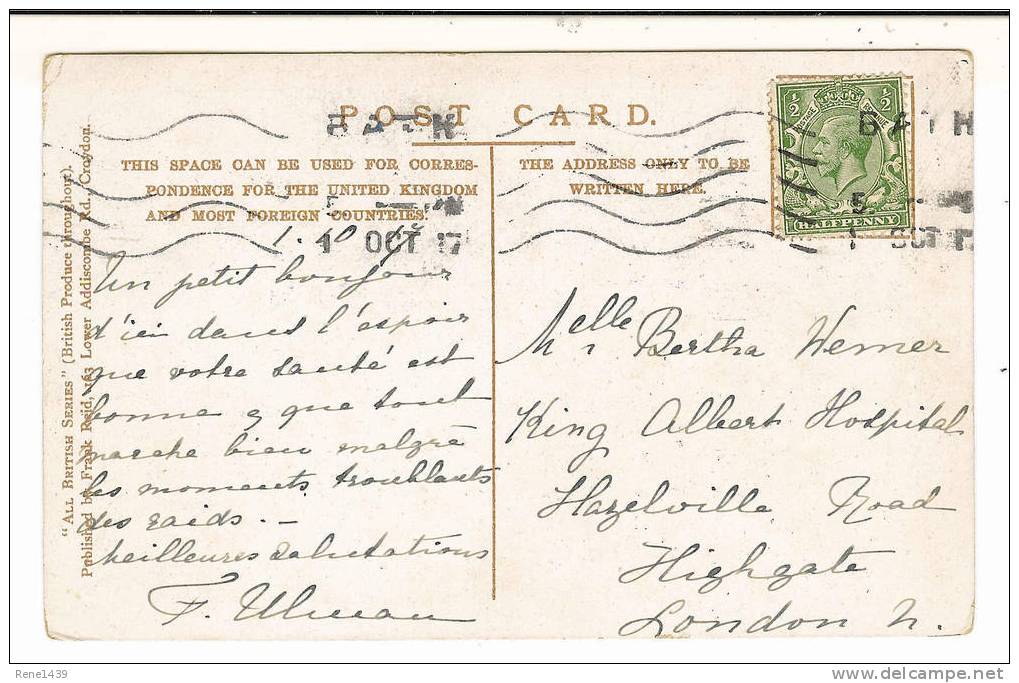 POST CARD.
BATH
BATH
THIS SPACE CAN BE USED FOR CORRES-
PONDENCE FOR THE UNITED KINGDOM
AND MOST FOREIGN COUNTRIES.
THE ADDRESS ONLY TO BE
WRITTEN HERE.
½ ½
HALFPENNY
5 — PM
1 OCT 17
5
1 OCT 17
1.10.17
Un petit bonjour
d'ici dans l'espoir
que votre santé est
bonne & que tout
marche bien malgré
les moments troublants
des raids. —
Meilleures salutations
F. Ulman
Melle Bertha Werner
King Albert Hospital
Hazelville Road
Highgate
London N.
"ALL BRITISH SERIES" (British Produce throughout).
Published by Frank Reid, 163 Lower Addiscombe Rd., Croydon.
Rene1439
www.delcampe.net